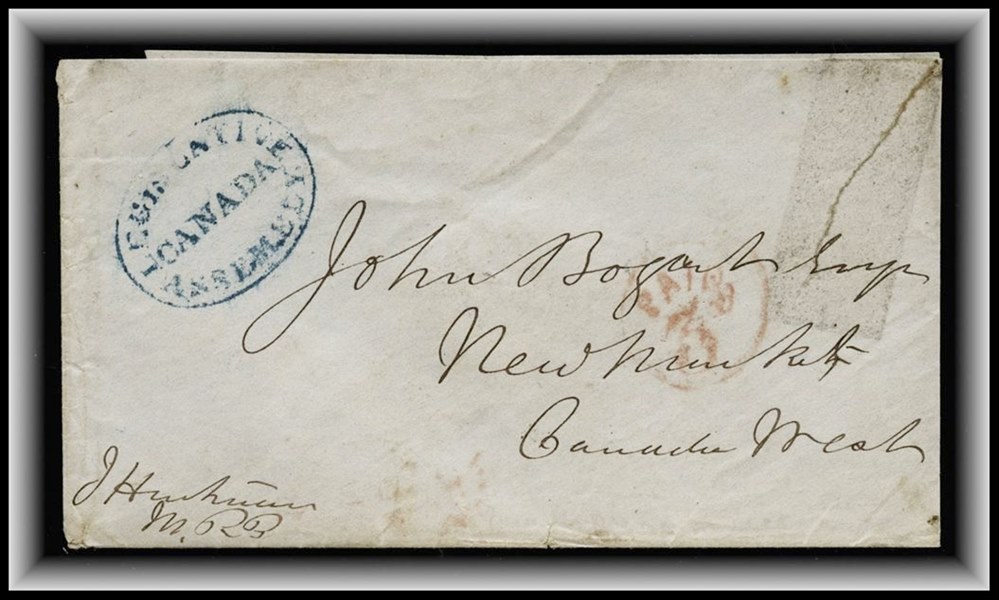 LEGISLATIVE
CANADA
ASSEMBLY
John Bogart Esqr
PAID
New Market
Canada West
J Hartman
M.P.P.